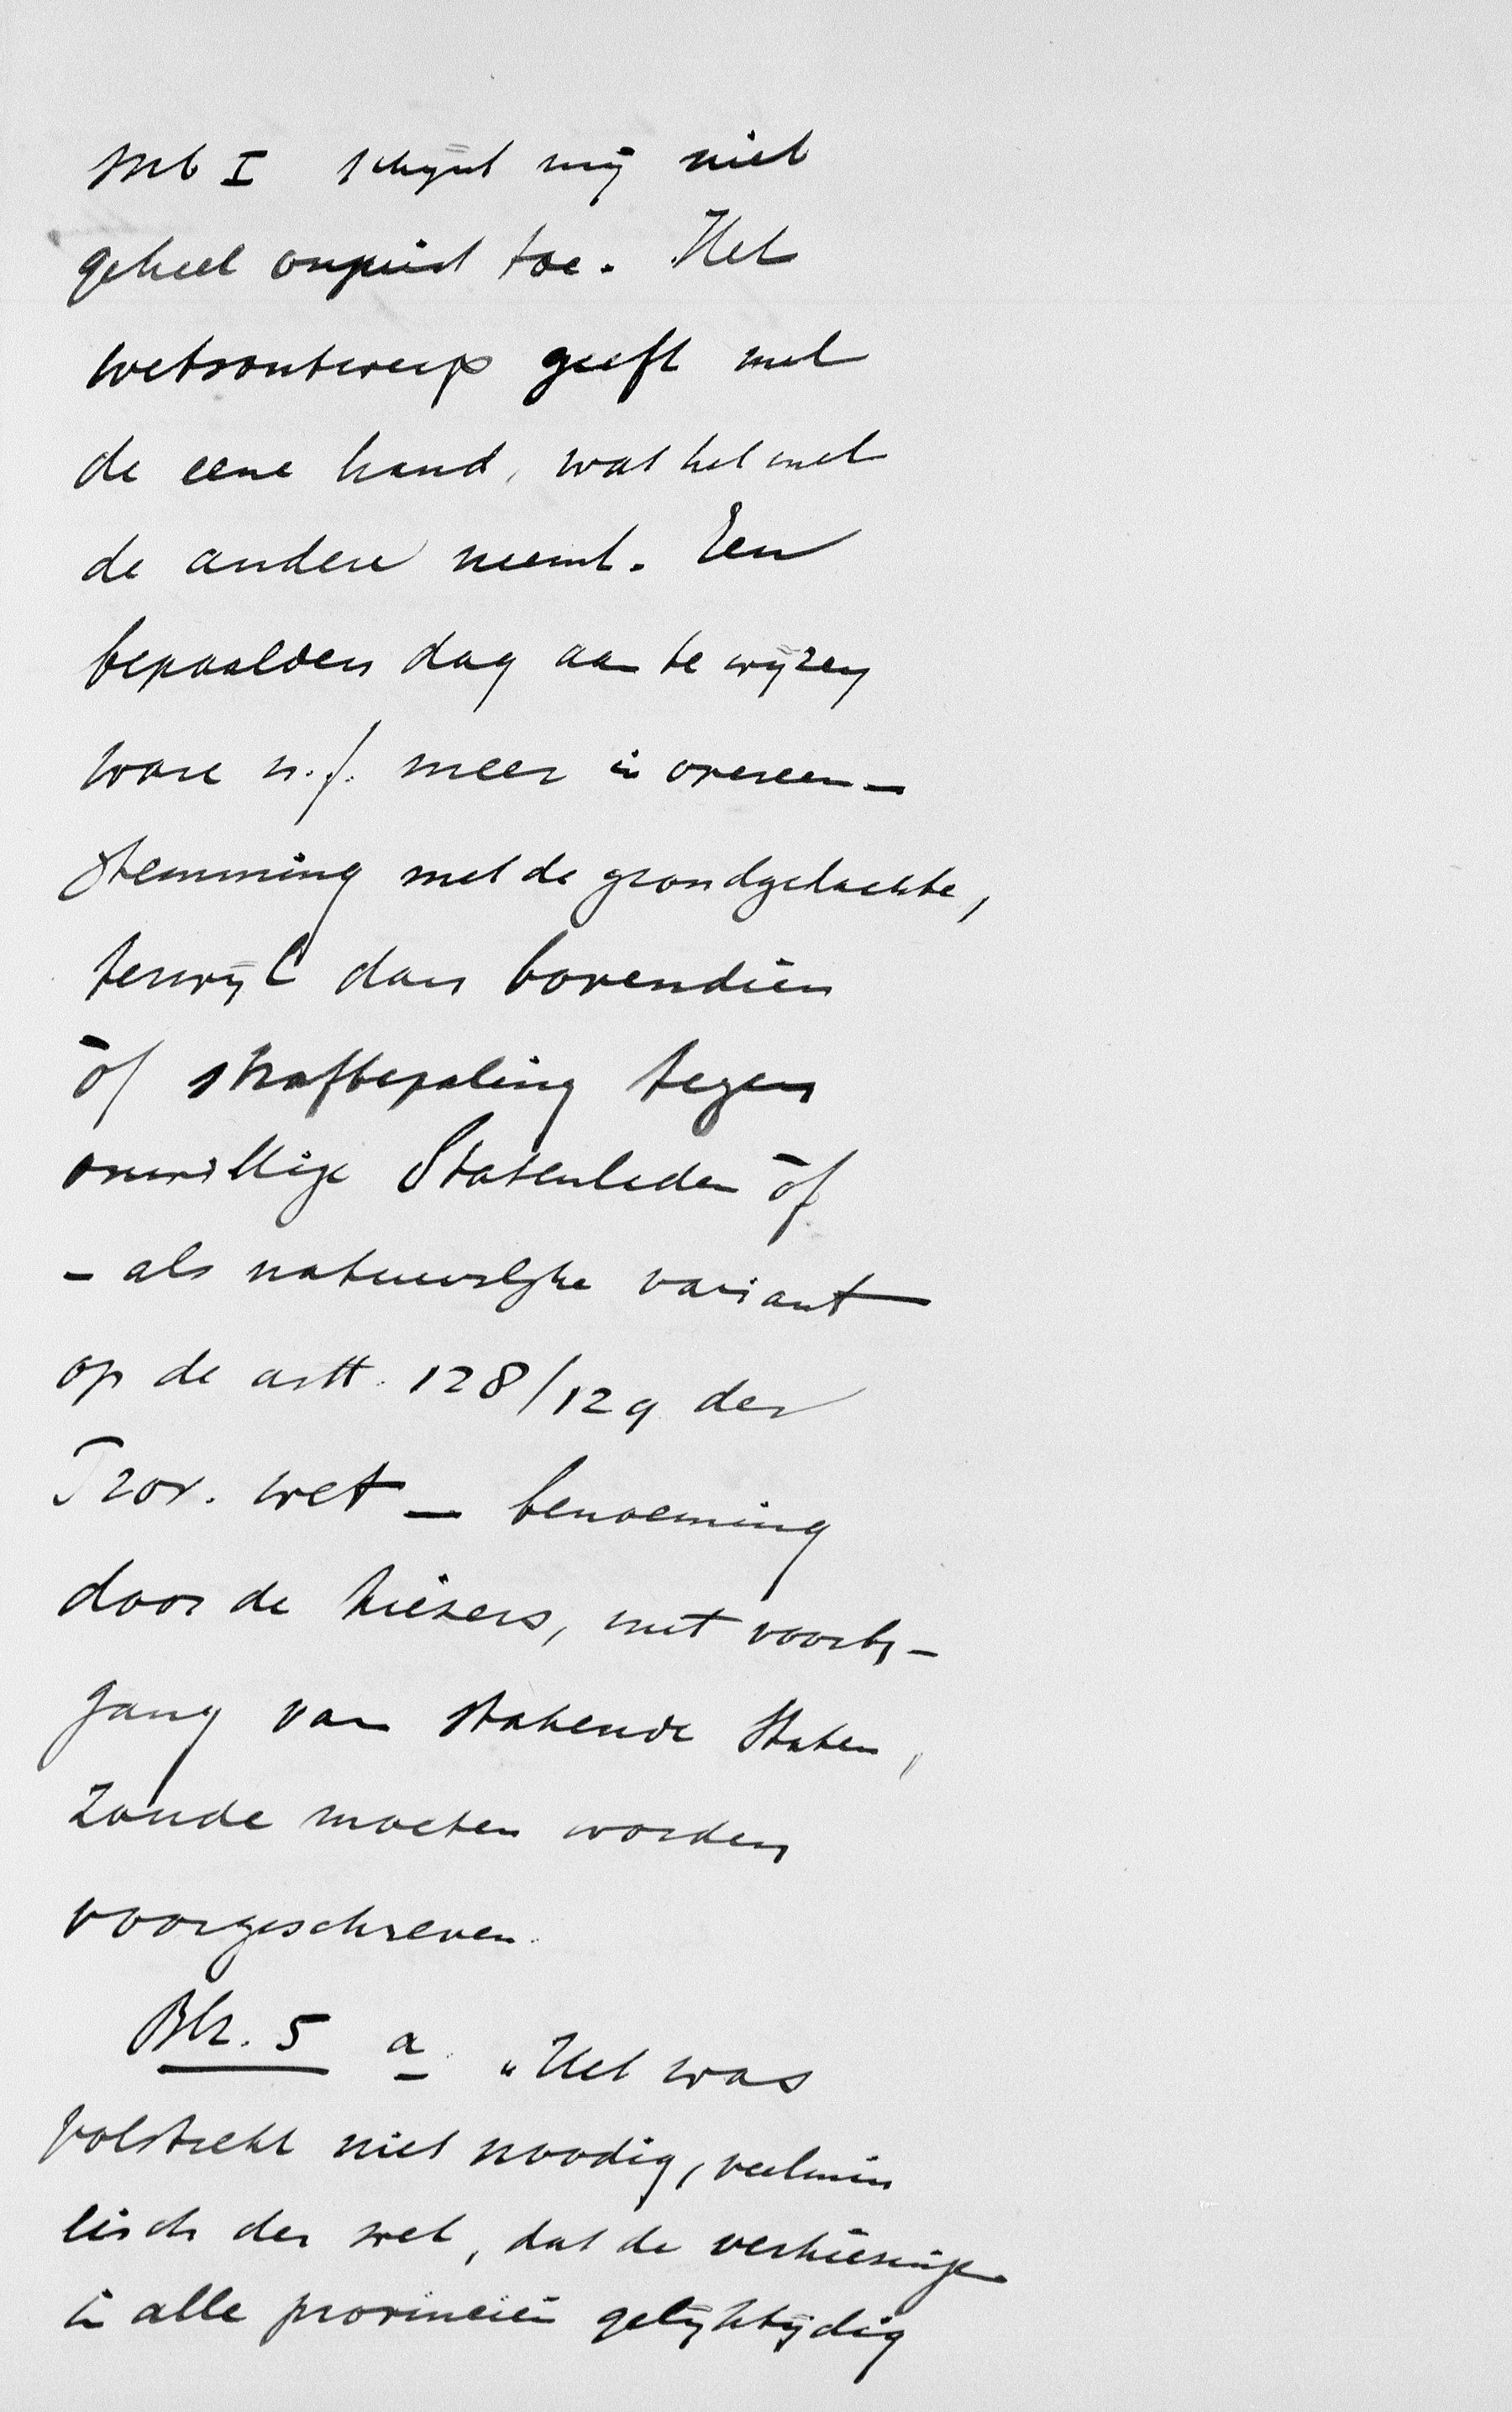 sub I schijnt mij niet
geheel onjuist toe. Het
wetsontwerp geeft met
de eene hand, wat het met
de andere neemt. Een
bepaalden dag aan te wijzen
ware n.f. meer in overeen-
stemming met de grondgedachte,
terwijl dan bovendien
òf strafbepaling tegen
onwillige Statenleden òf
- als natuurlijke variant
op de artt. 128/129 der
Prov. wet - benoeming
door de kiezers, met voorby-
gang van stakende Staten,
zoude moeten worden
voorgeschreven.
Blz. 5 a. "Het was
volstrekt niet noodig, veelmin
eisch der wet, dat de verkiezingen
in alle provinciën gelijktijdig